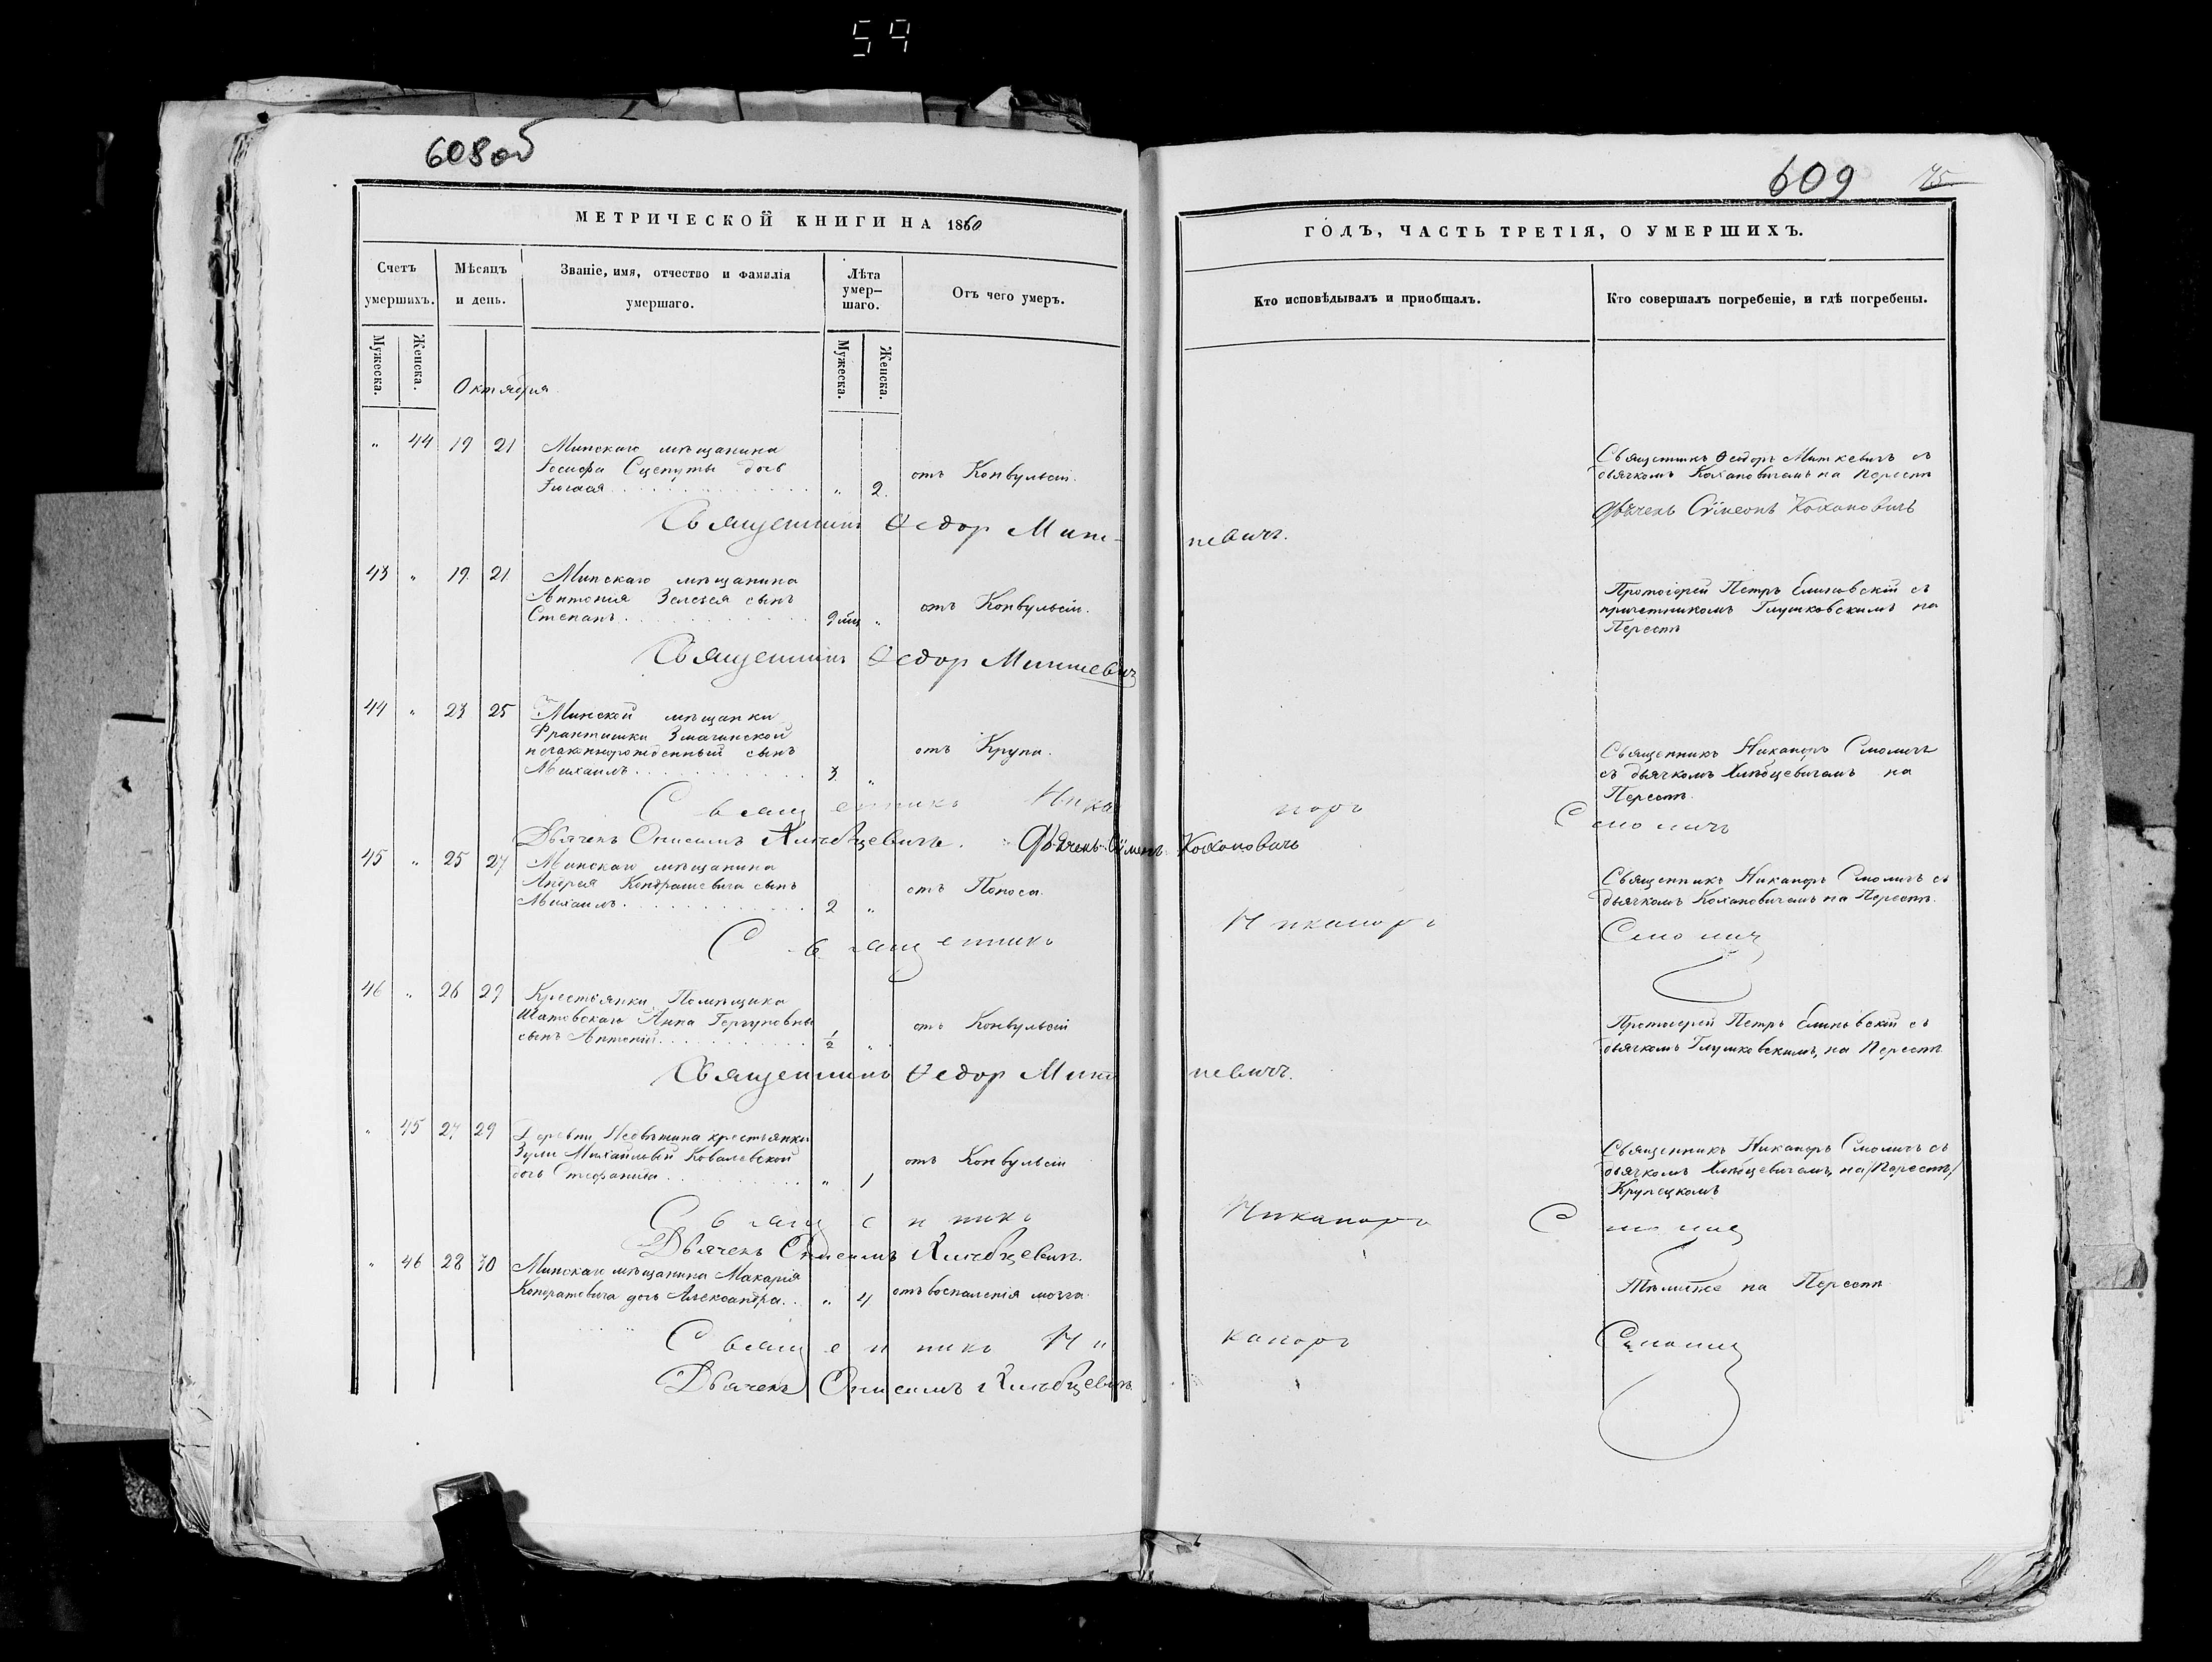 59
608 об
МЕТРИЧЕСКОЙ КНИГИ НА 1860
Счетъ умершихъ.
Мужеска.
Женска.
Мѣсяцъ и день.
Званіе, имя, отчество и фамилія умершаго.
Лѣта умер-шаго.
Мужеска.
Женска.
Отъ чего умеръ.
609 75
ГОДЪ, ЧАСТЬ ТРЕТІЯ, О УМЕРШИХЪ.
Кто исповѣдывалъ и пріобщалъ.
Кто совершалъ погребеніе, и гдѣ погребены.
Октября
„ 44 19 21 Минскаго мѣщанина
Іосифа Сцепуты дочь
„ 2. отъ Конвульсій.
Священникъ Ѳеодоръ Миткевичъ съ
дьячкомъ Кохановичемъ на Пересп.
Дьячекъ Сѵмеонъ Кохановичъ
Священникъ Ѳедор Миткевичъ.
43 „ 19. 21. Минскаго мѣщанина
Антонія сынъ
Степанъ 9 мц „ отъ Конвульсіи.
Протоіерей Петръ Елиновскій съ
причетникомъ Глушковскимъ на
Пересп
Священникъ Ѳедор Миткевич
44 „ 23 25 Минской мѣщанки
Франтишки Змачинской
незаконнорожденный сынъ
Михаилъ 3 „ отъ Крупа.
Священникъ Никаноръ Смоличъ
съ дьячкомъ Хлѣбцевичемъ на
Пересп.
Священникъ Никаноръ Смоличъ
Дьячекъ Онисимъ Хлѣбцевичъ. Дьячекъ Сѵмеонъ Кохановичъ
45 „ 25 27 Минскаго мѣщанина
Андрея Кондрашевича сынъ
Михаилъ 2 „ отъ Поноса
Священникъ Никаноръ Смоличъ съ
дьячкомъ Кохановичемъ на Пересп.
Священникъ Никаноръ Смолич
46 „ 26 29 Крестьянки Помѣщика
Шатовскаго Анна
сынъ Антоній 1/2 „ отъ Конвульсій
Протоіерей Петръ Елиновскій съ
дьячкомъ Глушковскимъ, на Пересп.
Священникъ Ѳедор Миткевичъ.
„ 45 27 29 Деревни крестьянки
Зули Михайловой Ковалевской
дочь Стефанида „ 1 отъ Конвульсіи
Священникъ Никаноръ Смоличъ съ
дьячкомъ Хлѣбцевичемъ, на /Пересп/
Крупецкомъ
Священникъ Никаноръ Смолич
Дьячекъ Онисимъ Хлѣбцевичъ.
„ 46 28 30 Минскаго мѣщанина Макарія
Кондратовича дочь Александра. „ 4 отъ воспаленія мозга.
Тѣмиже на Пересп
Священникъ Никаноръ Смолич
Дьячекъ Онисимъ Хлѣбцевичъ.